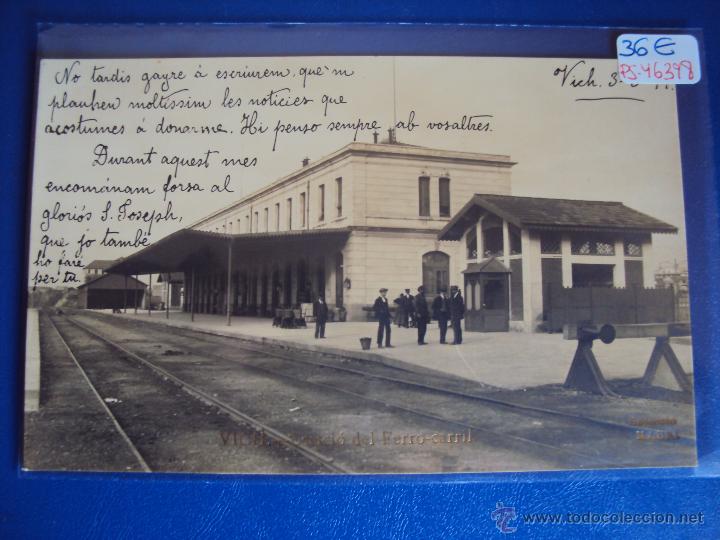 No tardis gayre á escriurem, que'm
plauhen moltissim les noticies que
acostumes á donarme. Hi penso sempre ab vosaltres.
Durant aquest mes
encománam forsa al
gloriós S. Joseph,
que jo també
ho faré
per tu.
Vich, 3-
36€
PS-46398
VICH. - Estació del Ferro-carril
www.todocoleccion.net